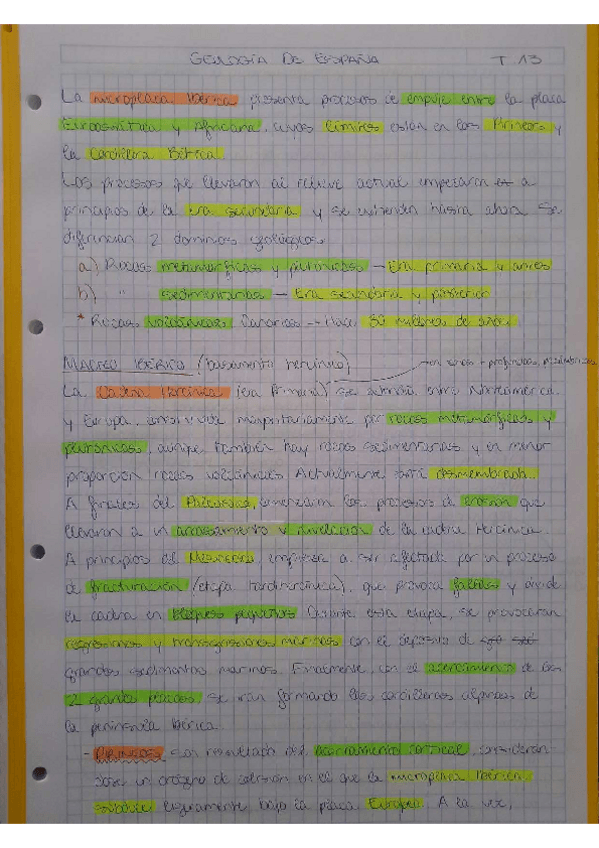 GEOLOGÍA DE ESPAÑA T.13
La microplaca Ibérica presenta procesos de empuje entre la placa
Euroasiática y Africana, cuyos límites están en los Pirineos y
la Cordillera Bética.
Los procesos que llevaron al relieve actual empezaron a
principios de la era secundaria y se extienden hasta ahora. Se
diferencian 2 dominios geológicos
a) Rocas metamórficas y plutónicas – Era primaria y antes
b) " sedimentarias – Era secundaria y posterior
* Rocas volcánicas: Canarias -- Hace 30 millones de años
MACIZO IBÉRICO (basamento hercínico) en zonas + profundas,
La Cadena Hercínica (era Primaria) se extendía entre Norteamérica
y Europa, constituida mayoritariamente por rocas metamórficas y
plutónicas, aunque también hay rocas sedimentarias y en menor
proporción rocas volcánicas. Actualmente está desmembrada.
A finales del Paleozoico, comenzaron los procesos de erosión que
llevaron a un arrasamiento y nivelación de la cadena Hercínica.
A principios del Mesozoico, empieza a ser afectada por un proceso
de fracturación (etapa tardihercínica), que provoca fallas y divide
la cadena en bloques pequeños. Durante esta etapa, se provocaron
regresiones y transgresiones marinas con el depósito de
grandes sedimentos marinos. Finalmente, con el acercamiento de las
2 grandes placas, se van formando las cordilleras alpinas de
la península Ibérica.
- Pirineos: son resultado del acortamiento cortical, considerán
dose un orógeno de colisión en el que la microplaca Ibérica
subduce ligeramente bajo la placa Europea. A la vez,